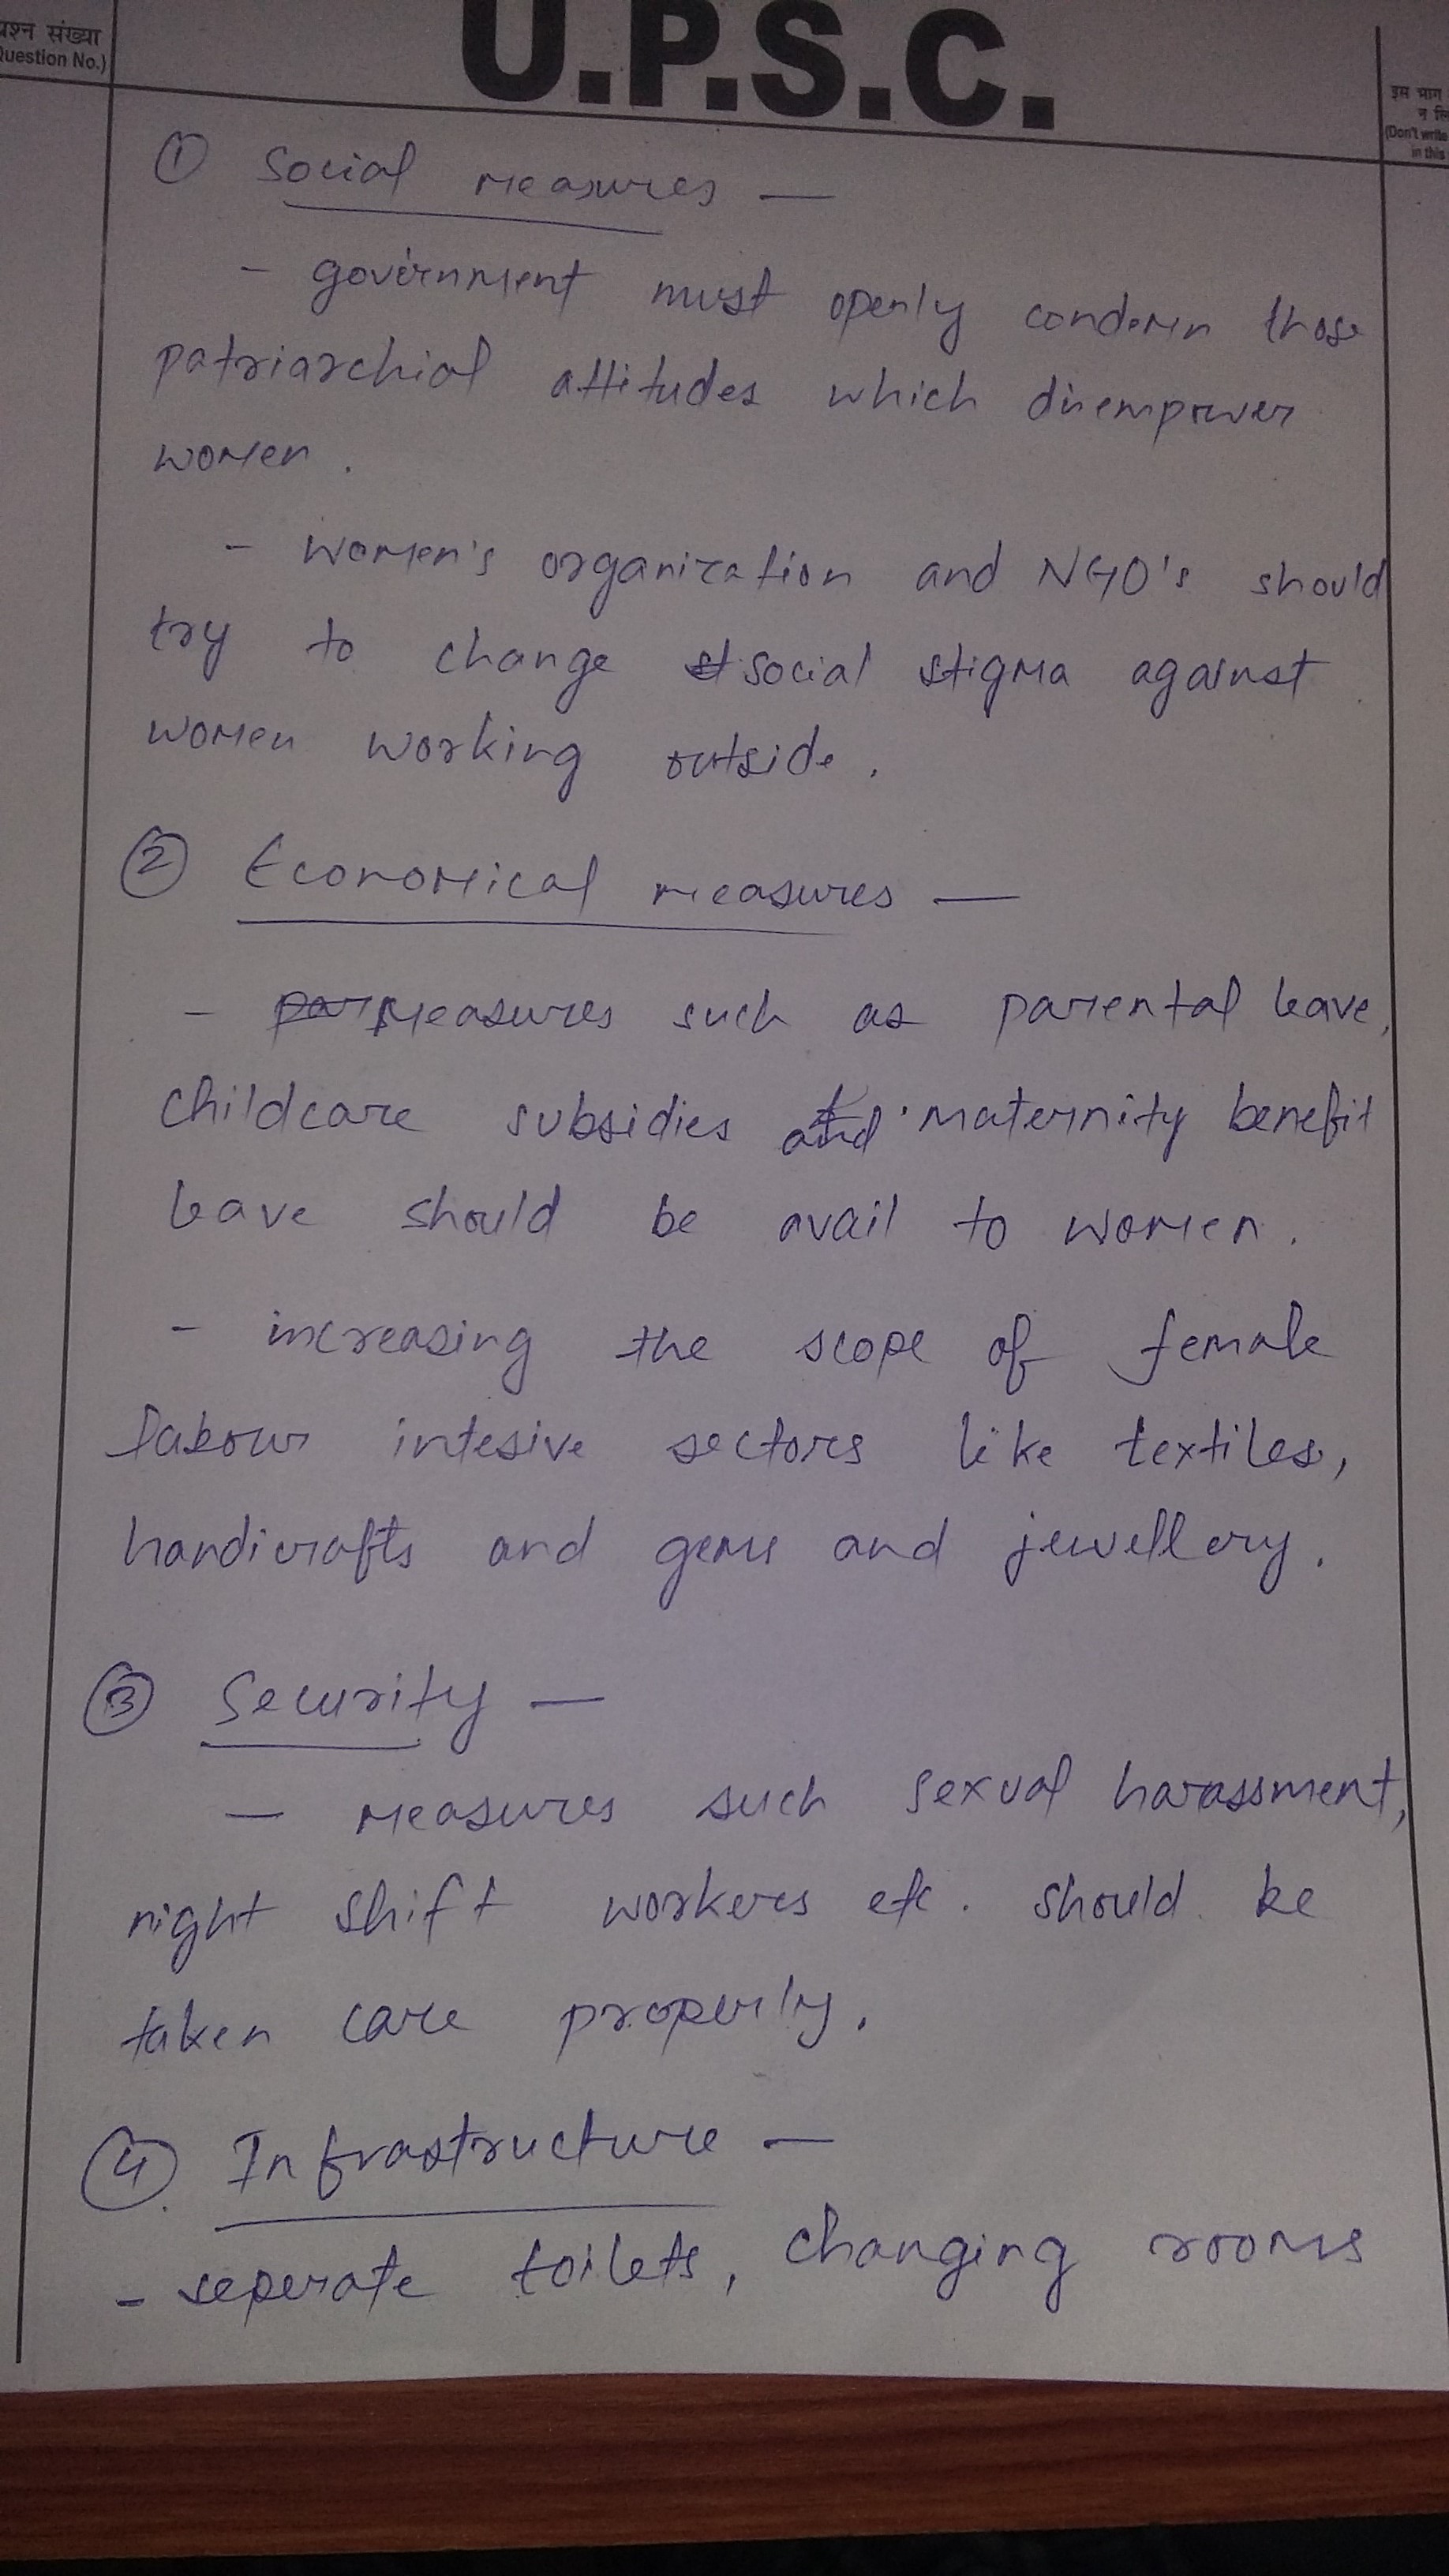 प्रश्न संख्या
(Question No.)
U.P.S.C.
इस भाग
(Don't write
in this
① Social measures —
- government must openly condemn those
patriarchial attitudes which disempower
women.
- women's organization and NGO's should
try to change social stigma against
women working outside.
② Economical measures —
- measures such as parental leave,
childcare subsidies and maternity benefit
leave should be avail to women.
- increasing the scope of female
labour intesive sectors like textiles,
handicrafts and gems and jewellery.
③ Security —
- measures such sexual harassment,
night shift workers etc. should be
taken care properly.
④ Infrastructure —
- seperate toilets, changing rooms